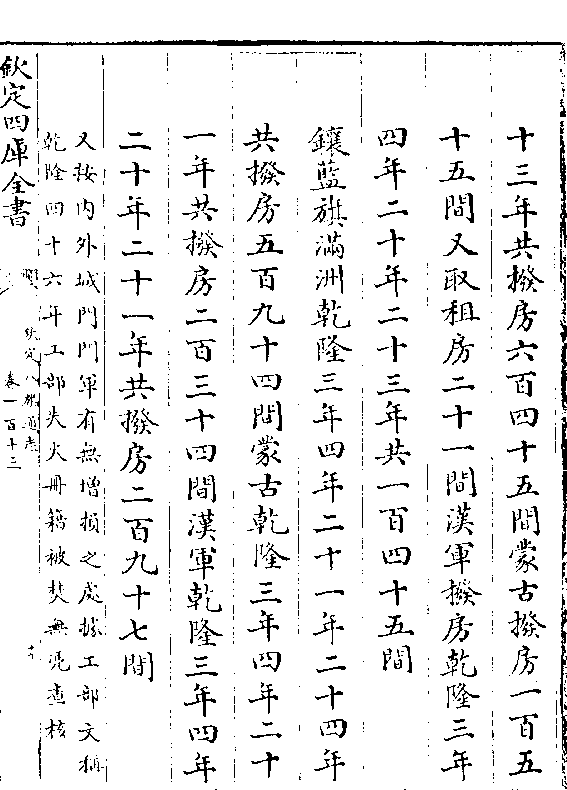 十三年共撥房六百四十五間蒙古撥房一百五
十五間又取租房二十一間漢軍撥房乾隆三年
四年二十年二十三年共一百四十五間
鑲藍旗滿洲乾隆三年四年二十一年二十四年
共撥房五百九十四間蒙古乾隆三年四年二十
一年共撥房二百三十四間漢軍乾隆三年四年
二十年二十一年共撥房二百九十七間
又按内外城門門軍有無增損之處據工部文稱
乾隆四十六年工部失火冊籍被焚無慿查核
欽定四庫全書
欽定八旗通志
卷一百十三